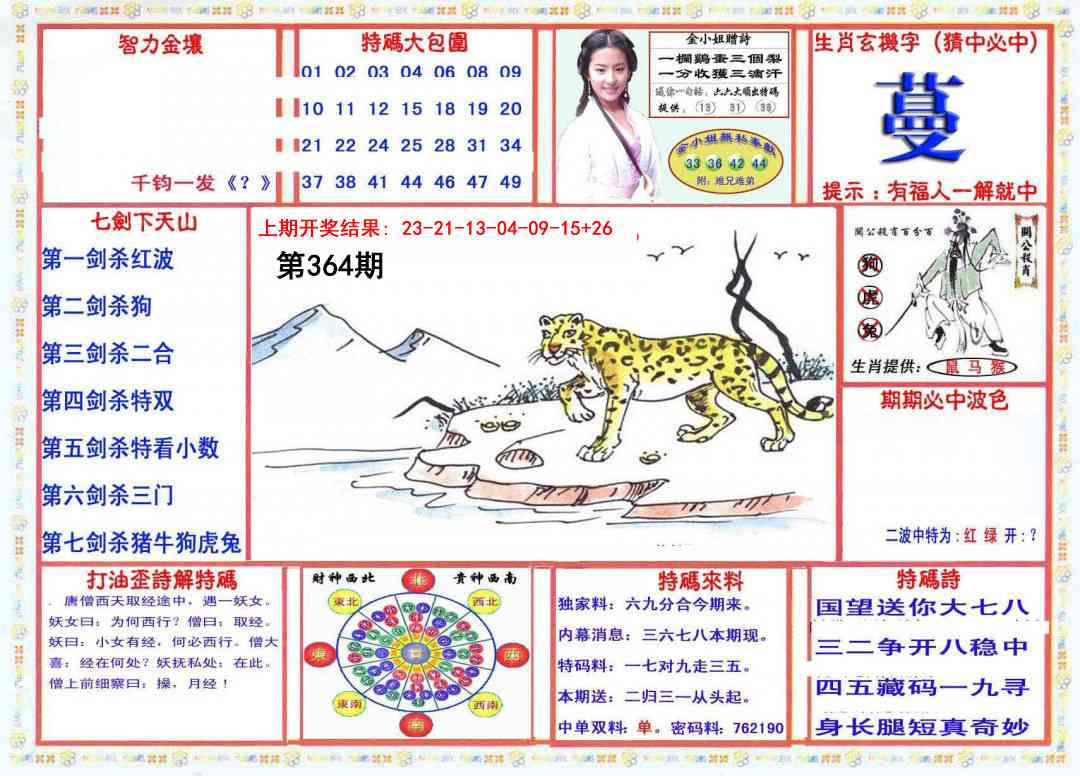 智力金壤
千钧一发《？》
特碼大包圍
01 02 03 04 06 08 09
10 11 12 15 18 19 20
21 22 24 25 28 31 34
37 38 41 44 46 47 49
金小姐贈詩
一欄鷄蛋三個梨
一分收獲三滴汗
送你一句話：六六大順出特碼
提供：13 31 38
金小姐無私奉獻
33 36 42 44
附：难兄难弟
生肖玄機字（猜中必中）
蔓
提示：有福人一解就中
七劍下天山
第一剑杀红波
第二剑杀狗
第三剑杀二合
第四剑杀特双
第五剑杀特看小数
第六剑杀三门
第七剑杀猪牛狗虎兔
上期开奖结果: 23-21-13-04-09-15+26
第364期
關公殺肖百分百
關公殺肖
狗
虎
兔
生肖提供: 鼠 马 猴
期期必中波色
二波中特为:红 绿 开:？
打油歪詩解特碼
. 唐僧西天取经途中，遇一妖女。
妖女曰：为何西行？僧曰：取经。
妖曰：小女有经，何必西行。僧大
喜：经在何处？妖抚私处：在此。
僧上前细察曰：操，月经！
財神西北
貴神西南
北
東北
西北
東
西
東南
西南
南
特碼來料
独家料：六九分合今期来。
内幕消息：三六七八本期现。
特码料：一七对九走三五。
本期送：二归三一从头起。
中单双料：单。密码料：762190
特碼詩
国望送你大七八
三二争开八稳中
四五藏码一九寻
身长腿短真奇妙